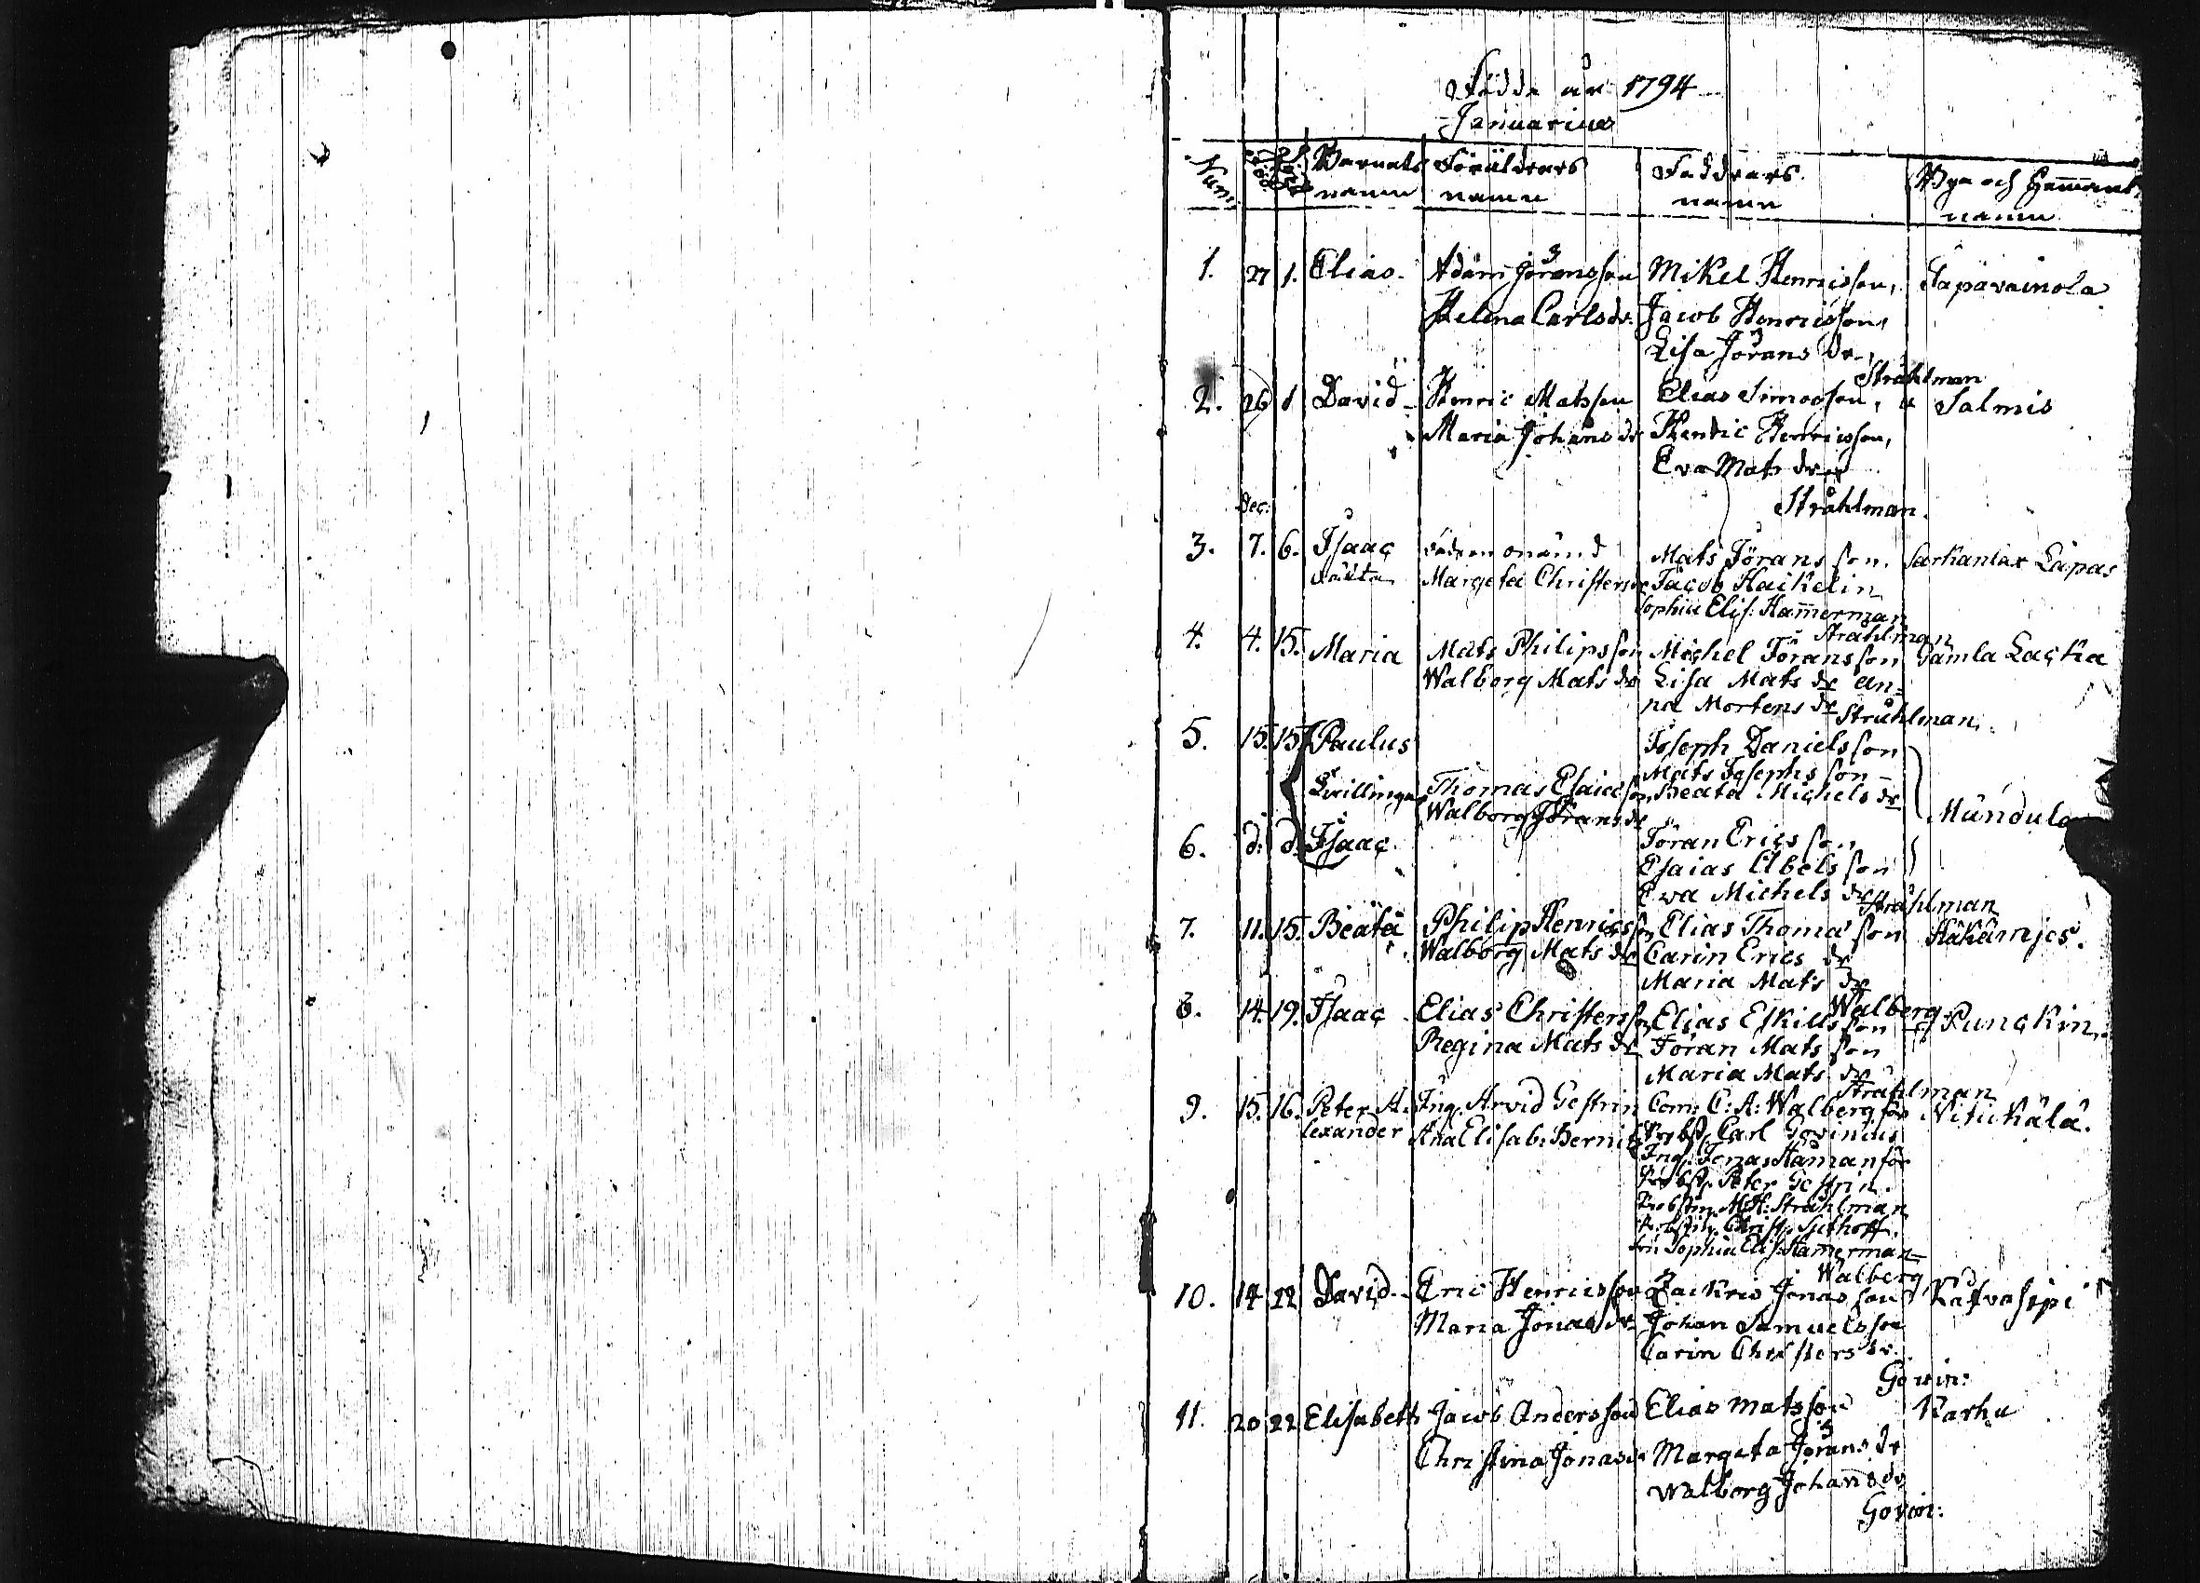 Födde år 1794
Januarius
Num: Född Döpt Barnets namn Föräldrars namn Faddrars namn Byn och Hemmans namn
1. 27 1. Elias. Adam Jöransson Mikel Henricsson, Tapavainola
Helena Carlsdr. Jacob Henricsson,
Lisa Jörans dr.,
Stråhlman
2. 26 1 David Henric Matsson Elias Simonsson, Salmis
Maria Johans dr Hendric Henricsson,
Eva Mats dr
Stråhlman.
Dec:
3. 7. 6. Isaac fadren onämd Mats Jöransson. Sarkanlax Lapas
oäckta Margeta Christersdr Jacob Haikelin
Sophia Elis: Ham̄erman
Stråhlman
4. 4. 15. Maria Mats Philipsson Michel Jöransson Gamla Lacka
Walborg Mats dr Lisa Mats dr An=
na Mortens dr
Stråhlman.
5. 15. 15. Paulus Joseph Danielsson
Mats Josephsson
Tvillingar Thomas Esaiasson Beata Michels dr
Walborg Jörans dr Mundula
6. d: d. Isaac. Jöran Ericsson
Esaias Abelsson
Eva Michels dr
Stråhlman
7. 11. 15. Beata Philip Henricsson Elias Thomasson Häkämjes.
Walborg Mats dr Carin Erics dr
Maria Mats dr
Walberg
8. 14. 19. Isaac Elias Christersson Elias Eskilsson Punckin.
Regina Mats dr Jöran Matsson
Maria Mats dr
Stråhlman
9. 15. 16. Peter A= Ing. Arvid Gestrin Com: C: A: Walberg för Nitukälä.
lexander Ana Elisab: Bernitz Probst. Carl Govinius
Ing. Jonas Haman för
Probst. Peter Gestrin.
Probstin. M: H: Stråhlman
Probstin. Christ: Suthoff.
Sophia Elis: Hamerman
Walberg
10. 14 22 David Eric Henricsson Zackris Jonasson Katvasipi
Maria Jonas dr Johan Samuelsson
Carin Christers dr.
Govin:
11. 20 22 Elisabeth Jacob Andersson Elias Matsson Karhu
Christina Jonasdr Margeta Jörans dr
Walborg Johans dr
Govin: